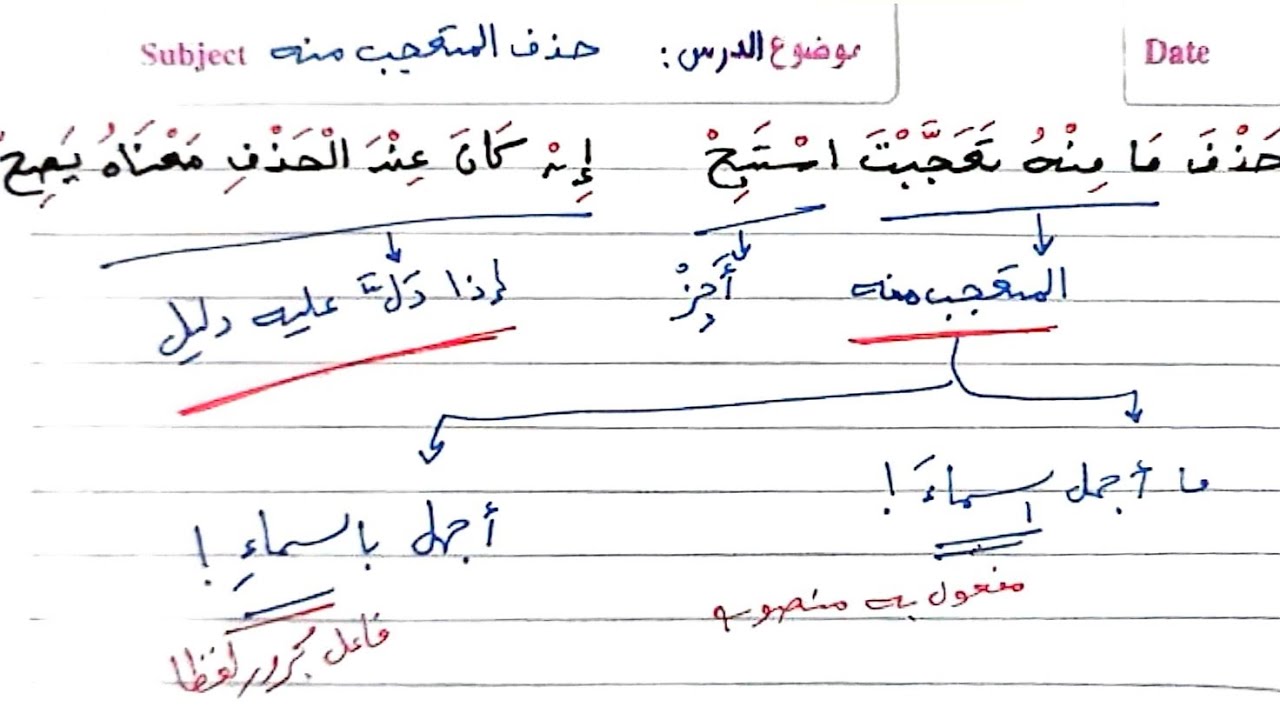 Date موضوع الدرس: حذف المتعجب منه Subject
حَذْفَ مَا مِنْهُ تَعَجَّبْتَ اسْتَبِحْ إِنْ كَانَ عِنْدَ الْحَذْفِ مَعْنَاهُ يَصِحْ
المتعجب منه أَجِزْ إذا دَلَّ عليه دليل
ما أجمل سماءَ!
أجمل بالسماءِ!
مفعول به منصوب
فاعل مجرور لفظا